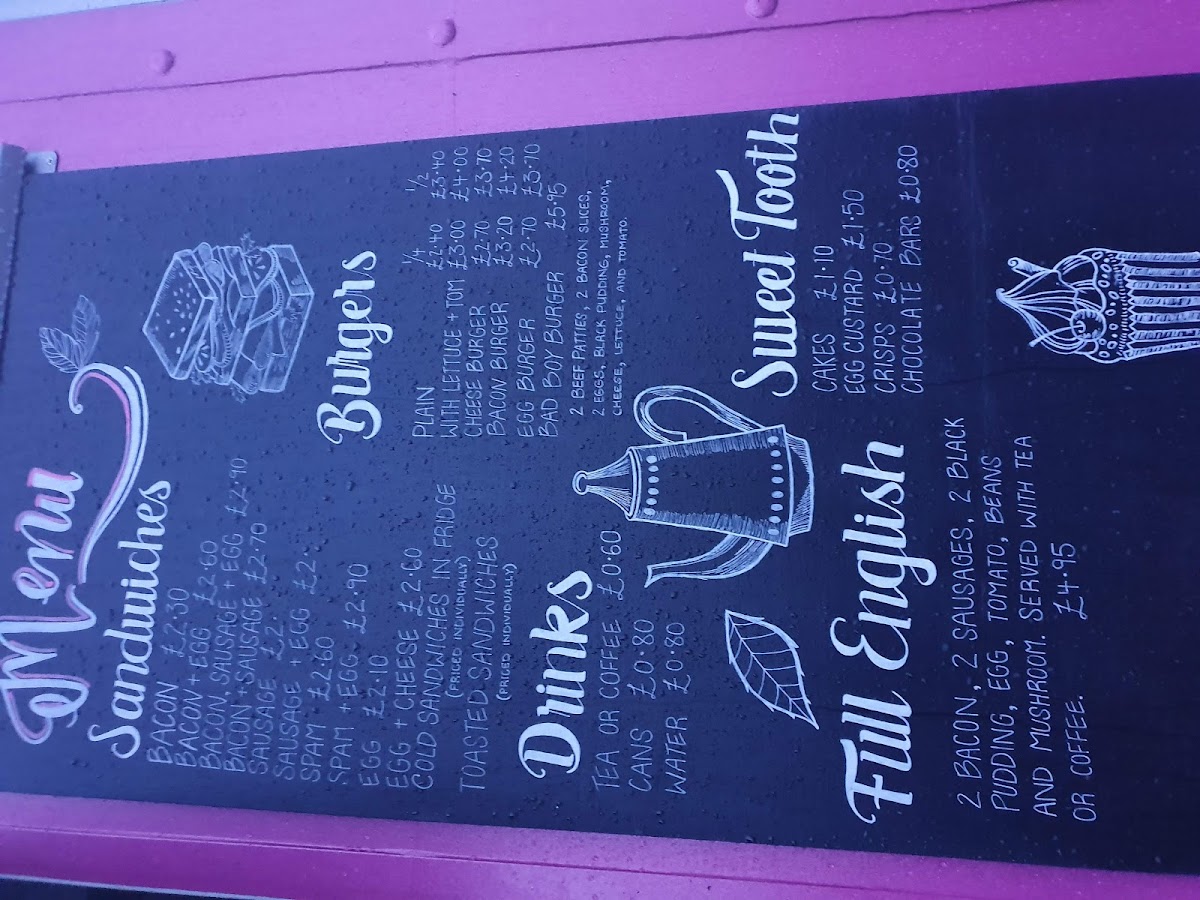 Menu
Sandwiches
BACON £2.30
BACON + EGG £2.60
BACON, SAUSAGE + EGG £2.90
BACON + SAUSAGE £2.70
SAUSAGE £2.
SAUSAGE + EGG £2.
SPAM £2.60
SPAM + EGG £2.90
EGG £2.10
EGG + CHEESE £2.60
COLD SANDWICHES IN FRIDGE
(PRICED INDIVIDUALLY)
TOASTED SANDWICHES
(PRICED INDIVIDUALLY)
Burgers
1/4 1/2
PLAIN £2.40 £3.40
WITH LETTUCE + TOM £3.00 £4.00
CHEESE BURGER £2.70 £3.70
BACON BURGER £3.20 £4.20
EGG BURGER £2.70 £3.70
BAD BOY BURGER £5.95
2 BEEF PATTIES, 2 BACON SLICES,
2 EGGS, BLACK PUDDING, MUSHROOM,
CHEESE, LETTUCE, AND TOMATO.
Drinks
TEA OR COFFEE £0.60
CANS £0.80
WATER £0.80
Sweet Tooth
CAKES £1.10
EGG CUSTARD £1.50
CRISPS £0.70
CHOCOLATE BARS £0.80
Full English
2 BACON, 2 SAUSAGES, 2 BLACK
PUDDING, EGG, TOMATO, BEANS
AND MUSHROOM. SERVED WITH TEA
OR COFFEE. £4.95